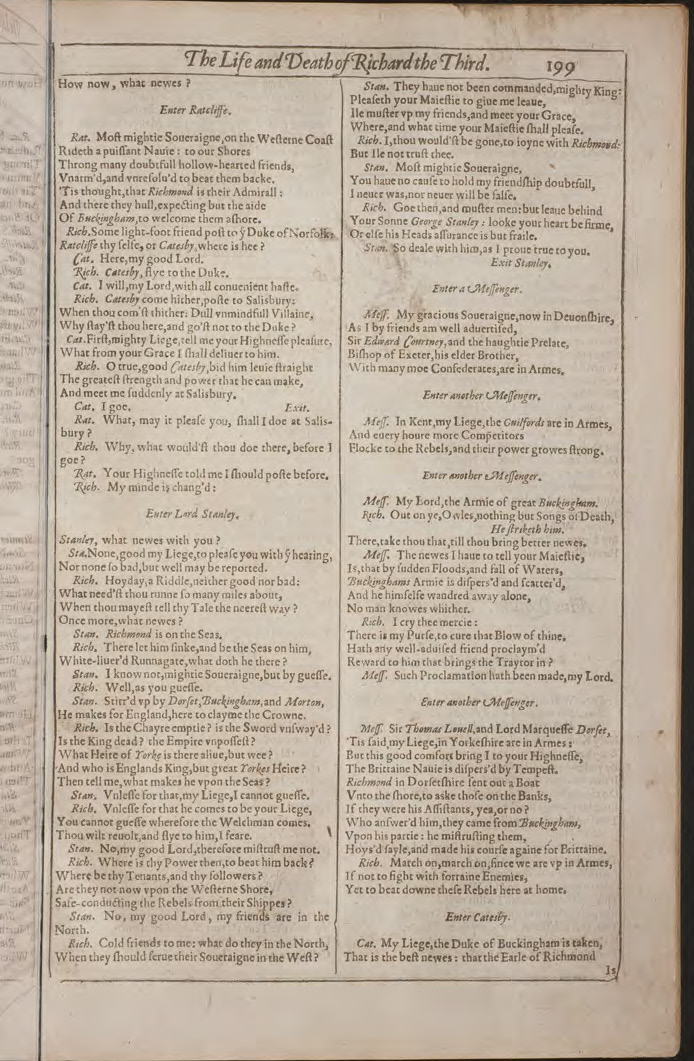 The Life and Death of Richard the Third. 199
How now, what newes ?
Enter Ratcliffe.
Rat. Moſt mightie Soueraigne,on the Weſterne Coaſt
Rideth a puiſſant Nauie : to our Shores
Throng many doubtfull hollow-hearted friends,
Vnarm'd,and vnreſolu'd to beat them backe.
'Tis thought,that Richmond is their Admirall :
And there they hull,expecting but the aide
Of Buckingham,to welcome them aſhore.
Rich.Some light-foot friend poſt to yͤ Duke of Norfolk:
Ratcliffe thy ſelfe, or Catesby,where is hee ?
Cat. Here,my good Lord.
Rich. Catesby, flye to the Duke.
Cat. I will,my Lord,with all conuenient haſte.
Rich. Catesby come hither,poſte to Salisbury:
When thou com'ſt thither: Dull vnmindfull Villaine,
Why ſtay'ſt thou here,and go'ſt not to the Duke ?
Cat.Firſt,mighty Liege,tell me your Highneſſe pleaſure,
What from your Grace I ſhall deliuer to him.
Rich. O true,good Catesby,bid him leuie ſtraight
The greateſt ſtrength and power that he can make,
And meet me ſuddenly at Salisbury.
Cat. I goe. Exit.
Rat. What, may it pleaſe you, ſhall I doe at Salis-
bury ?
Rich. Why, what would'ſt thou doe there, before I
goe ?
Rat. Your Highneſſe told me I ſhould poſte before.
Rich. My minde is chang'd :
Enter Lord Stanley.
Stanley, what newes with you ?
Sta.None,good my Liege,to pleaſe you with yͤ hearing,
Nor none ſo bad,but well may be reported.
Rich. Hoyday,a Riddle,neither good nor bad:
What need'ſt thou runne ſo many miles about,
When thou mayeſt tell thy Tale the neereſt way ?
Once more,what newes ?
Stan. Richmond is on the Seas.
Rich. There let him ſinke,and be the Seas on him,
White-liuer'd Runnagate,what doth he there ?
Stan. I know not,mightie Soueraigne,but by gueſſe.
Rich. Well,as you gueſſe.
Stan. Stirr'd vp by Dorſet,Buckingham,and Morton,
He makes for England,here to clayme the Crowne.
Rich. Is the Chayre emptie ? is the Sword vnſway'd ?
Is the King dead ? the Empire vnpoſſeſt ?
What Heire of Yorke is there aliue,but wee ?
And who is Englands King,but great Yorkes Heire ?
Then tell me,what makes he vpon the Seas ?
Stan. Vnleſſe for that,my Liege,I cannot gueſſe.
Rich. Vnleſſe for that he comes to be your Liege,
You cannot gueſſe wherefore the Welchman comes.
Thou wilt reuolt,and flye to him,I feare.
Stan. No,my good Lord,therefore miſtruſt me not.
Rich. Where is thy Power then,to beat him back ?
Where be thy Tenants,and thy followers ?
Are they not now vpon the Weſterne Shore,
Safe-conducting the Rebels from their Shippes ?
Stan. No, my good Lord, my friends are in the
North.
Rich. Cold friends to me: what do they in the North,
When they ſhould ſerue their Soueraigne in the Weſt ?
Stan. They haue not been commanded,mighty King:
Pleaſeth your Maieſtie to giue me leaue,
Ile muſter vp my friends,and meet your Grace,
Where,and what time your Maieſtie ſhall pleaſe.
Rich. I,thou would'ſt be gone,to ioyne with Richmond:
But Ile not truſt thee.
Stan. Moſt mightie Soueraigne,
You haue no cauſe to hold my friendſhip doubtfull,
I neuer was,nor neuer will be falſe.
Rich. Goe then,and muſter men: but leaue behind
Your Sonne George Stanley : looke your heart be firme,
Or elſe his Heads aſſurance is but fraile.
Stan. So deale with him,as I proue true to you.
Exit Stanley.
Enter a Meſſenger.
Meſſ. My gracious Soueraigne,now in Deuonſhire,
As I by friends am well aduertiſed,
Sir Edward Courtney,and the haughtie Prelate,
Biſhop of Exeter,his elder Brother,
With many moe Confederates,are in Armes.
Enter another Meſſenger.
Meſſ. In Kent,my Liege,the Guilfords are in Armes,
And euery houre more Competitors
Flocke to the Rebels,and their power growes ſtrong.
Enter another Meſſenger.
Meſſ. My Lord,the Armie of great Buckingham.
Rich. Out on ye,Owles,nothing but Songs of Death,
He ſtriketh him.
There,take thou that,till thou bring better newes.
Meſſ. The newes I haue to tell your Maieſtie,
Is,that by ſudden Floods,and fall of Waters,
Buckinghams Armie is diſpers'd and ſcatter'd,
And he himſelfe wandred away alone,
No man knowes whither.
Rich. I cry thee mercie :
There is my Purſe,to cure that Blow of thine.
Hath any well-aduiſed friend proclaym'd
Reward to him that brings the Traytor in ?
Meſſ. Such Proclamation hath been made,my Lord.
Enter another Meſſenger.
Meſſ. Sir Thomas Louell,and Lord Marqueſſe Dorſet,
'Tis ſaid,my Liege,in Yorkeſhire are in Armes :
But this good comfort bring I to your Highneſſe,
The Brittaine Nauie is diſpers'd by Tempeſt.
Richmond in Dorſetſhire ſent out a Boat
Vnto the ſhore,to aske thoſe on the Banks,
If they were his Aſſiſtants, yea,or no ?
Who anſwer'd him,they came from Buckingham,
Vpon his partie : he miſtruſting them,
Hoys'd ſayle,and made his courſe againe for Brittaine.
Rich. March on,march on,ſince we are vp in Armes,
If not to fight with forraine Enemies,
Yet to beat downe theſe Rebels here at home.
Enter Catesby.
Cat. My Liege,the Duke of Buckingham is taken,
That is the beſt newes : that the Earle of Richmond
Is